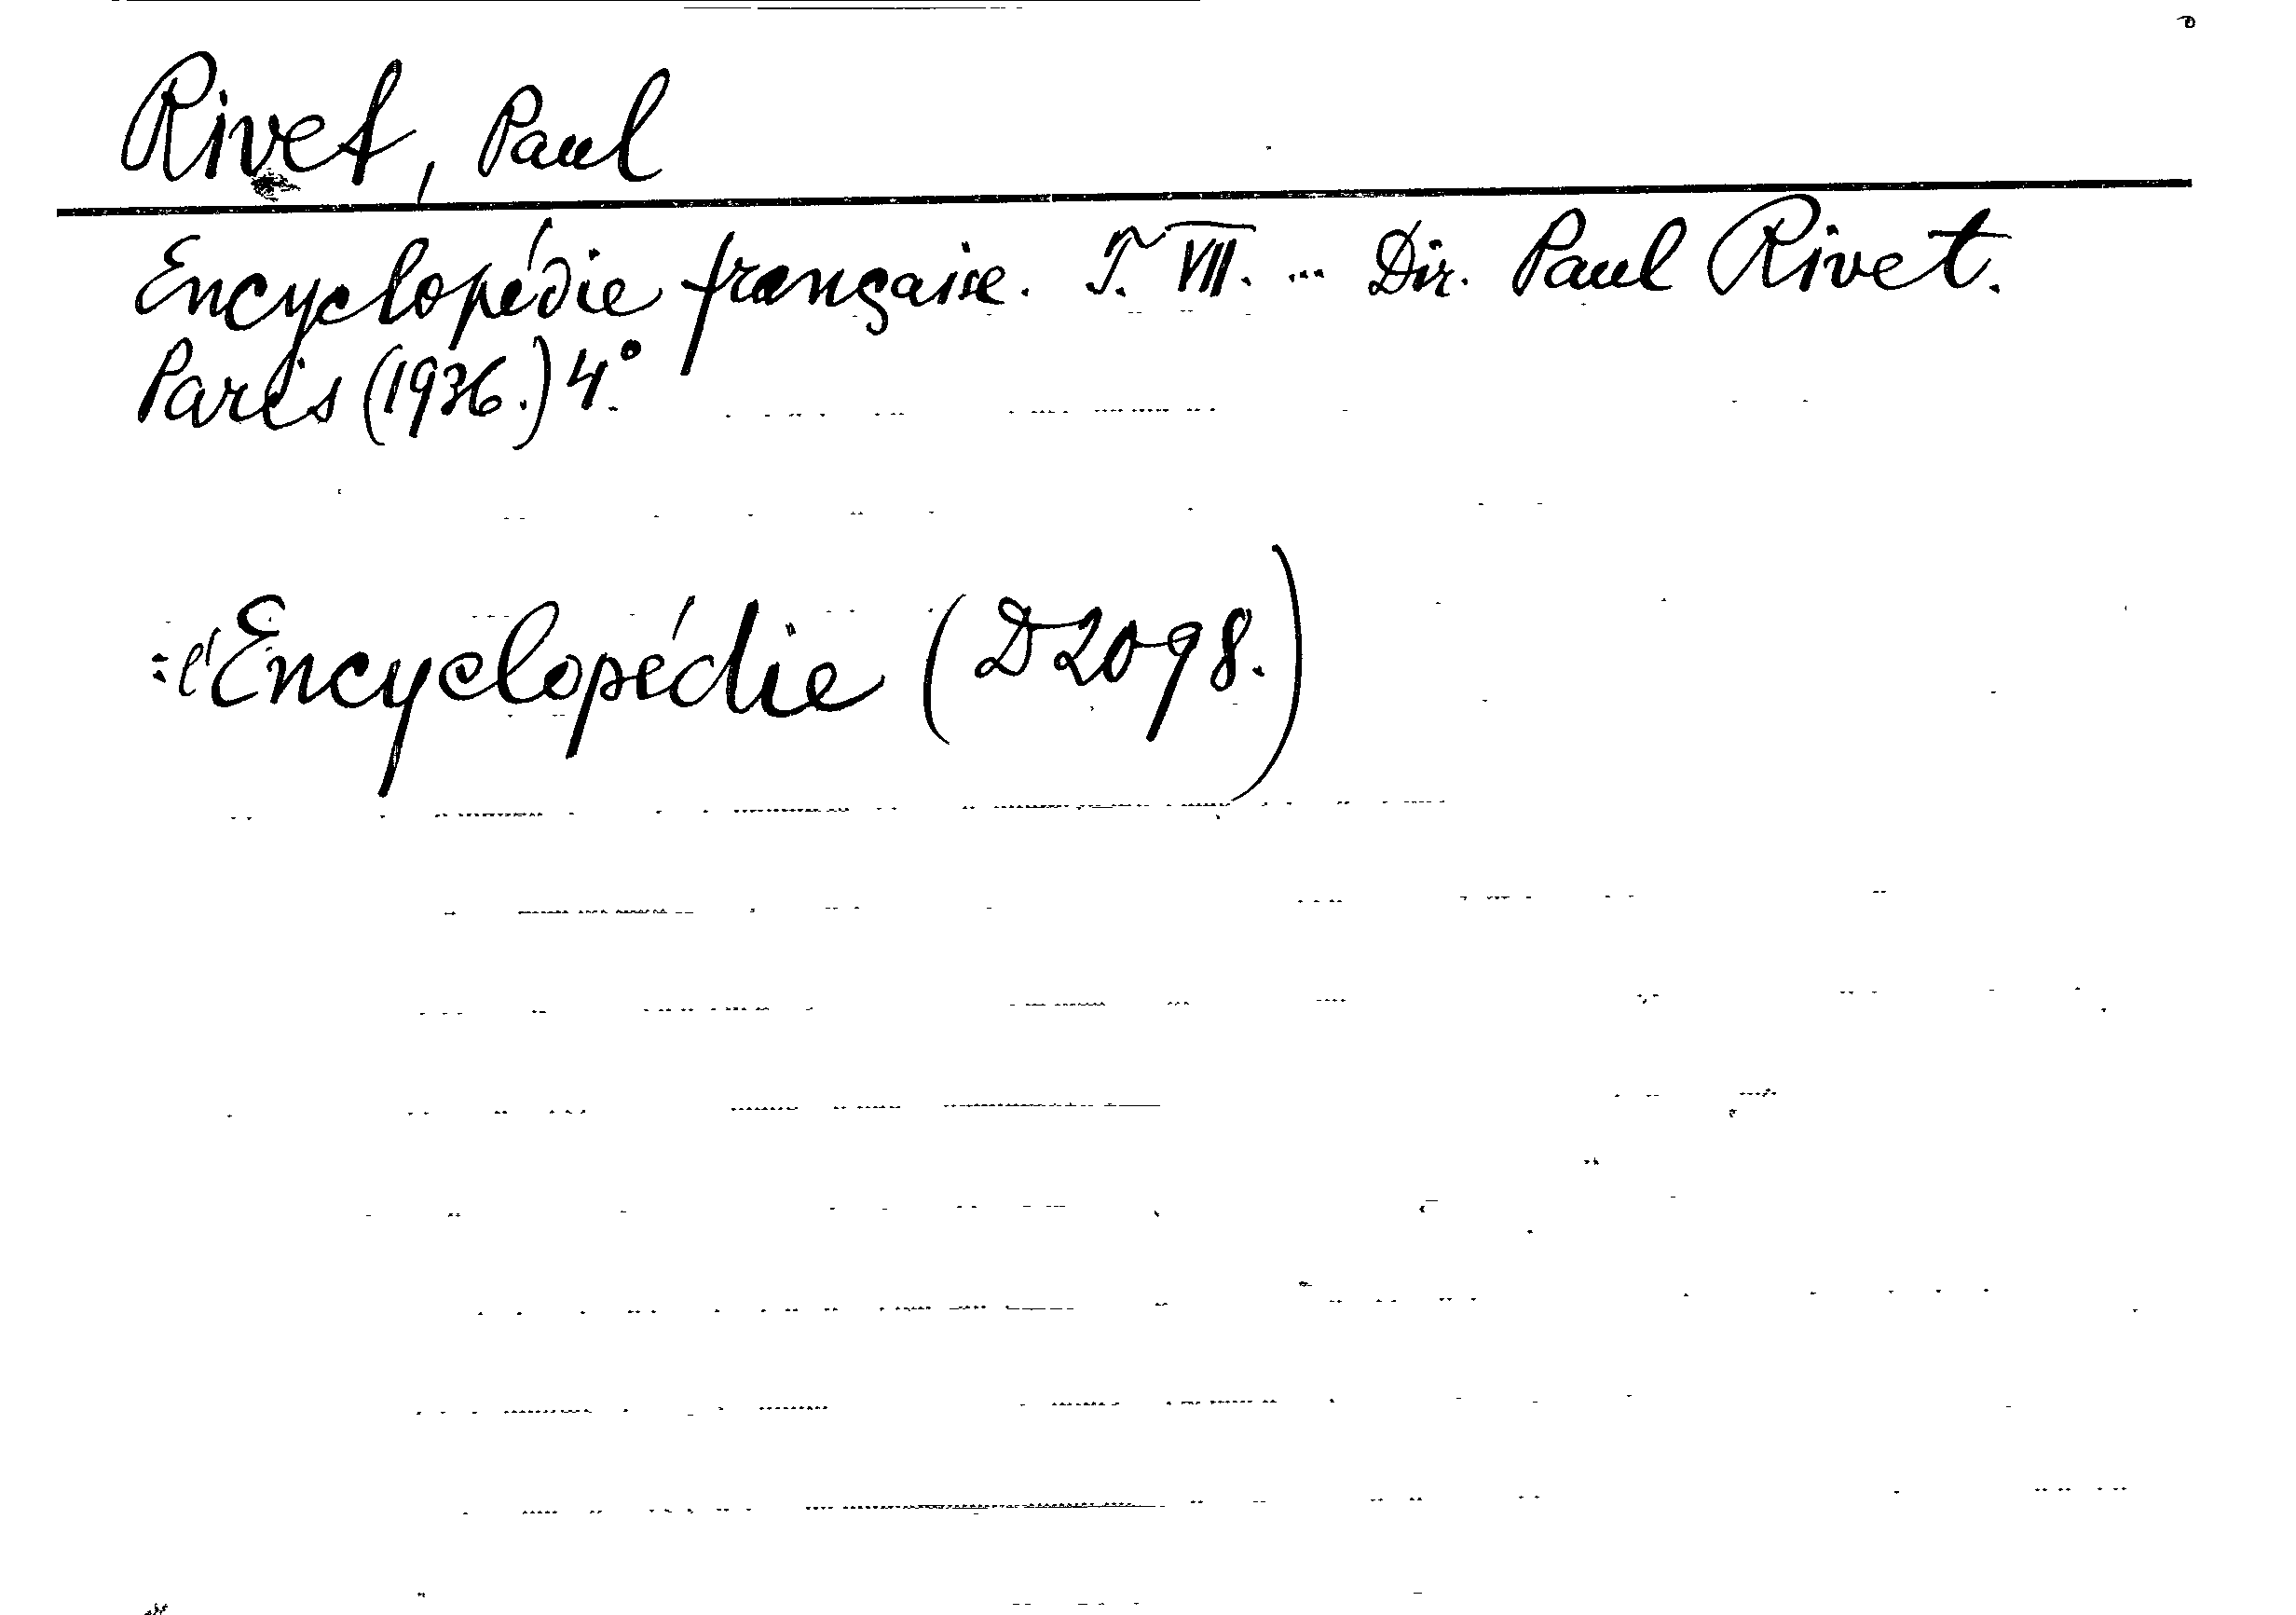 Rivet, Paul
Encyclopédie française. T. VII. ... Dir. Paul Rivet.
Paris (1936.) 4°
=l'Encyclopédie (D2098.)